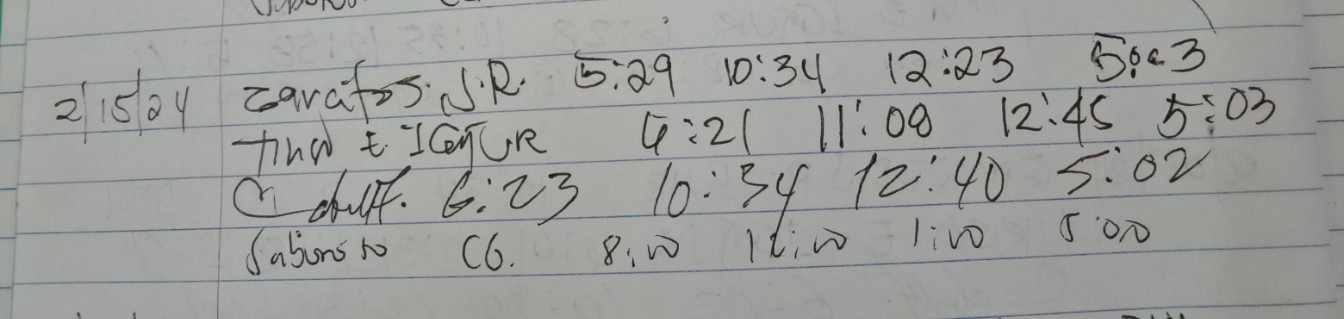 2/15/24 zarafos. J.R. 5:29 10:34 12:23 5:03
4:21 11:08 12:45 5:03
C 6:23 10:34 12:40 5:02
Sabions to CG. 8:00 12:00 1:00 5:00